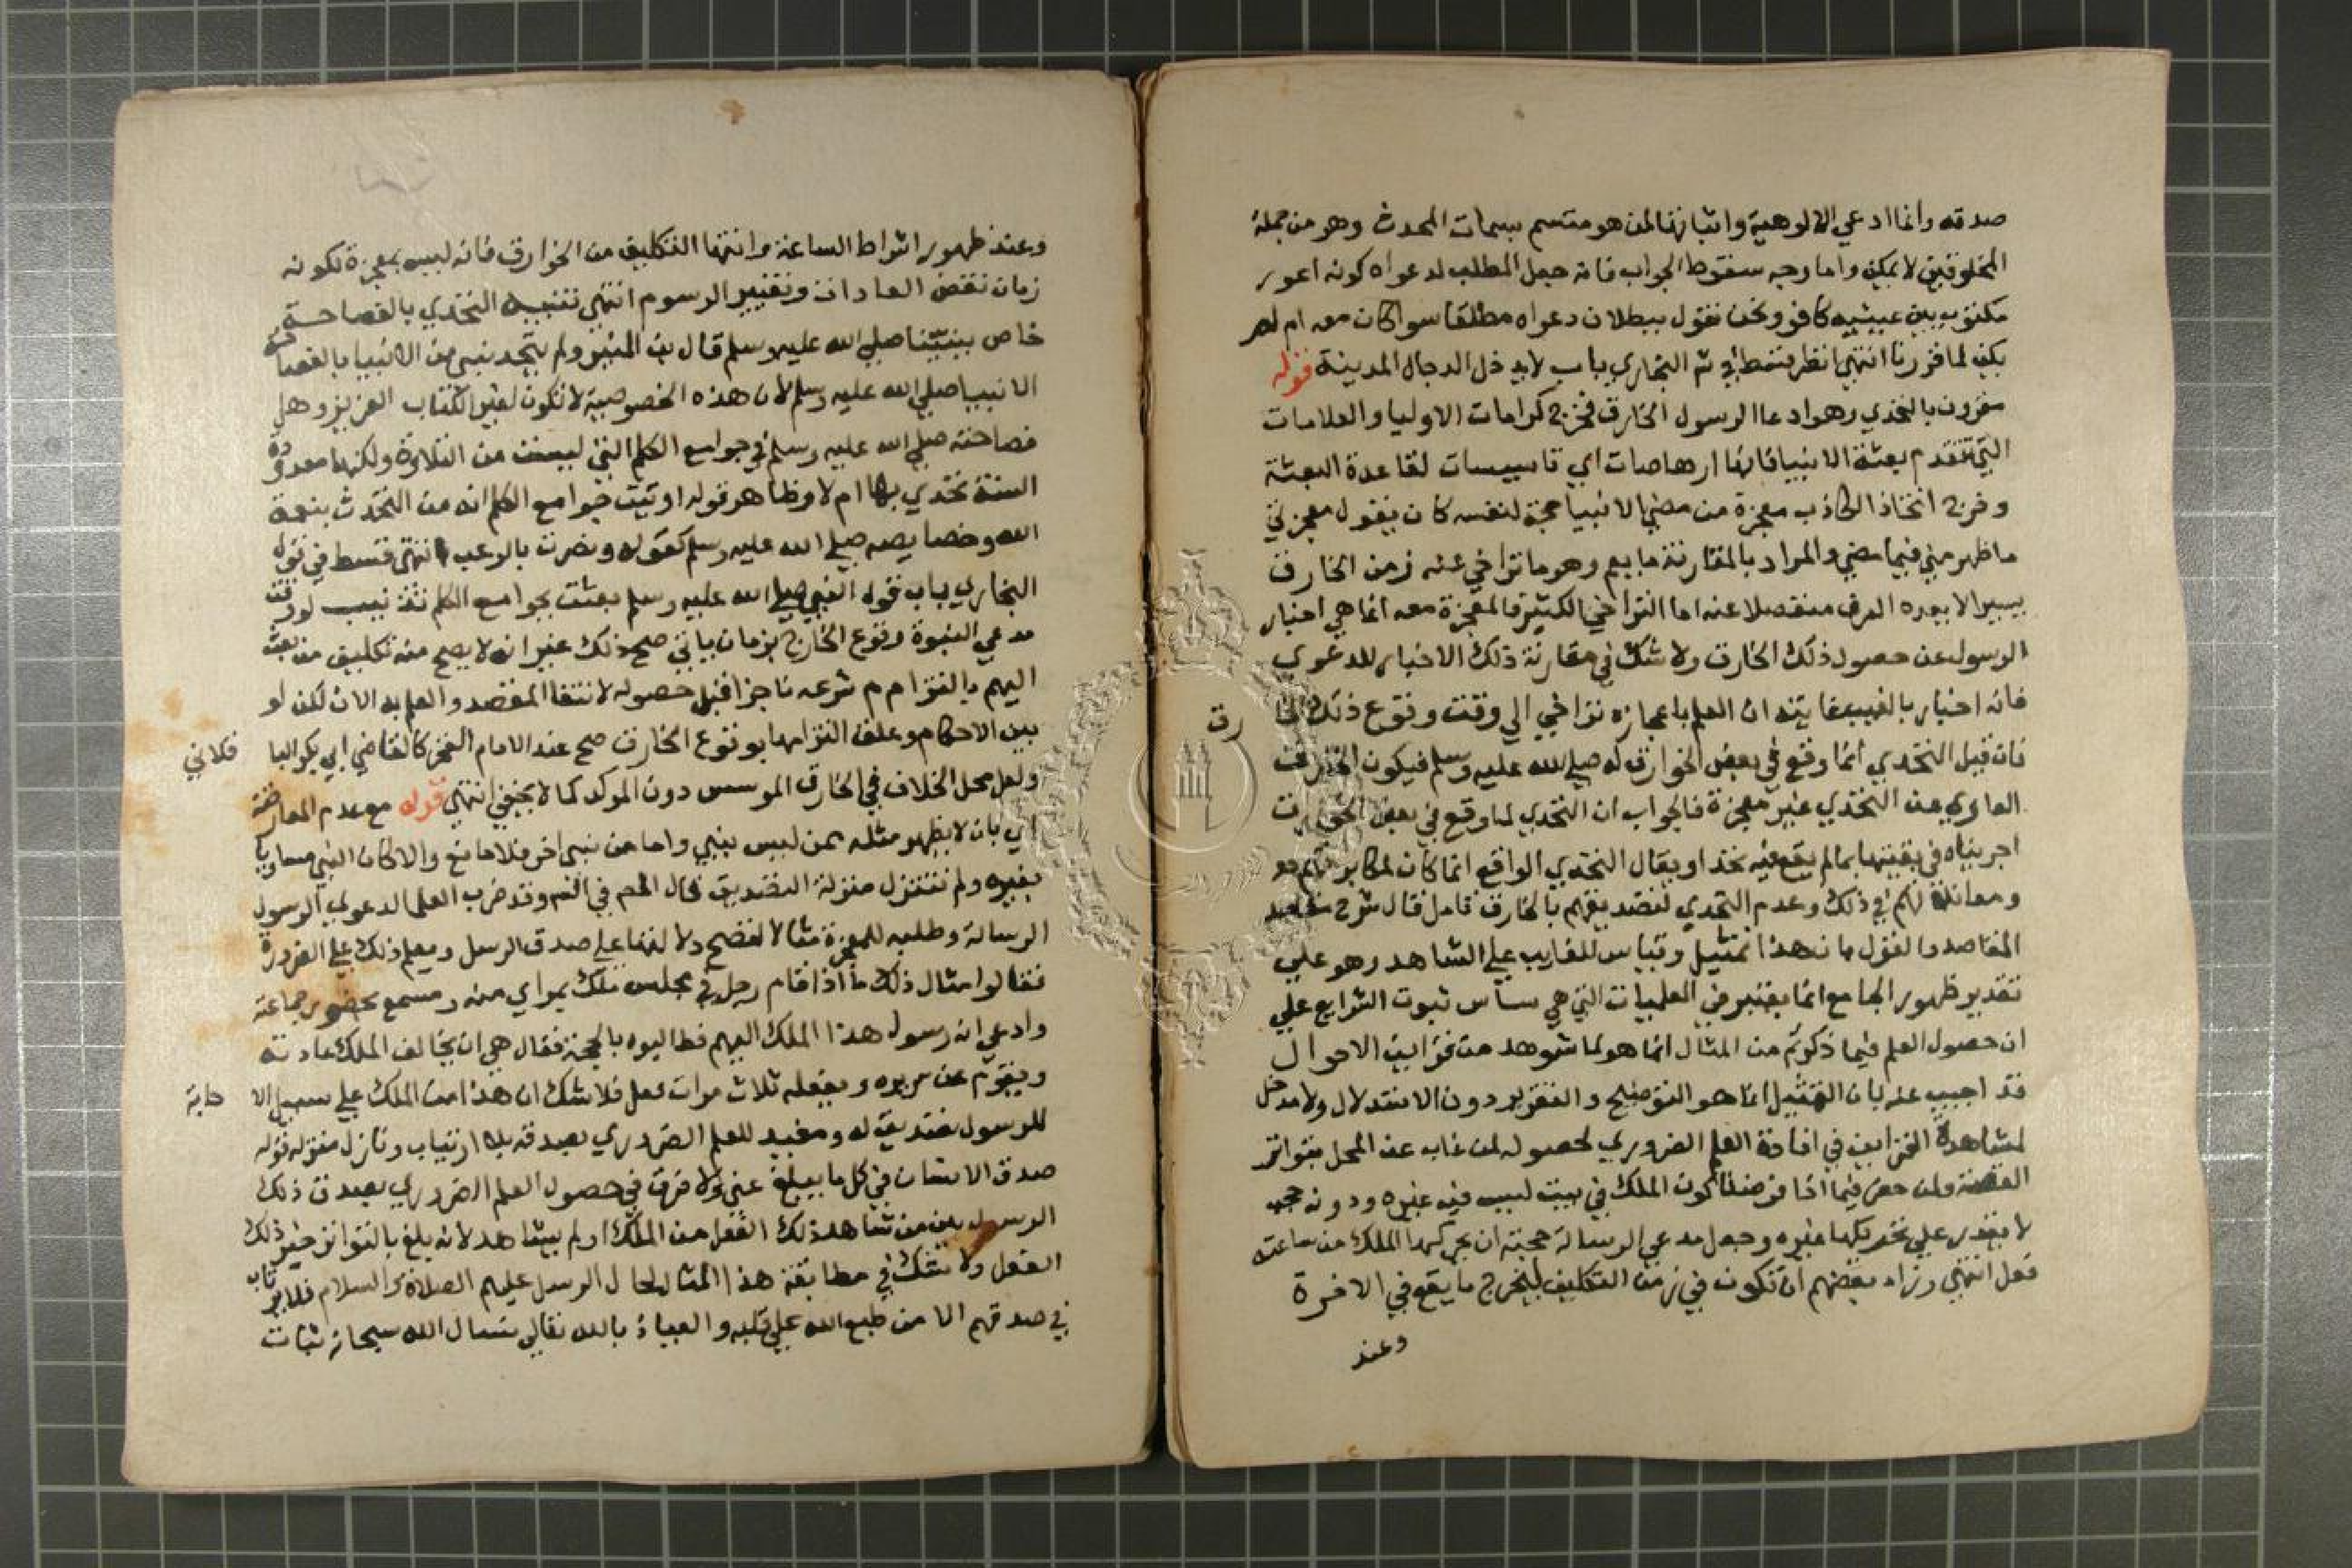 صدقه وانما ادعي الالوهية واثباتها لمن هو متسم بسمات المحدث وهو من جملة
المخلوقين لا يمكن واما وجه سقوط الجواب فانه جعل المطلب لدعواه كونه اعور
مكتوب بين عينيه كافر ونحن نقول ببطلان دعواه مطلقا سوا كان معه ام لم
يكن لما قررنا انتهي انظر ثم البخاري باب لا يدخل الدجال المدينة قوله
مقرون بالتحدي وهو ادعا الرسول الخارق فخرج كرامات الاوليا والعلامات
التي تتقدم بعثة الانبيا فانها ارهاصات اي تاسيسات لقاعدة البعثة
وخرج اتخاذ الكاذب معجزة من مضي الانبيا حجة لنفسه كان يقول معجزتي
ما ظهر مني فيما مضي والمراد بالمقارنة ما يعم وهو ما تراخي عنه زمن الخارق
بيسير لا يعده العرف منفصلا عنه اما التراخي الكثير فالمعجزة معه انما هي اخبار
الرسول عن حصول ذلك الخارق ولا شك في مقارنة ذلك الاخبار للدعوي
فانه اخبار بالغيب غايته ان العلم باعجازه تراخي الي وقت وقوع ذلك الخا رق
فان قيل التحدي انما وقع في بعض الخوارق له صلي الله عليه وسلم فيكون الخارق
العاري عن التحدي غير معجزة فالجواب ان التحدي لما وقع في بعض الخوارق
اجريناه في بقيتها بما لم يقع فيه تحد او يقال التحدي الواقع انما كان لمكابرتهم
في ذلك وعدم التحدي لتصديقهم بالخارق تامل قال شرح
المقاصد والقول بان هذا تمثيل وقياس للغايب علي الشاهد وهو علي
تقدير ظهور الجامع انما يعتبر في العلميات التي هي ساس ثبوت الشرايع علي
ان حصول العلم فيما ذكرتم من المثال انما هو لما شوهد من قراين الاحوال
قد اجيب عنه بان التمثيل انما هو التوضيح والتقرير دون الاستدلال ولا مدخل
لمشاهدة القراين في افادة العلم الضروري لحصوله لمن غاب عن المحل بتواتر
القصة ولمن حضر فيما اذا فرضنا كون الملك في بيت ليس فيه غيره ودونه حجب
لا يقدر علي تحريكها غيره وجعل مدعي الرسالة حجته ان يحركها الملك من ساعته
فعل انتهي وزاد بعضهم ان تكون في زمن التكليف ليخرج ما يقع في الاخرة
وعند
وعند ظهور اشراط الساعة وانتها التكليف من الخوارق فانه ليس بمعجزة لكونه
زمان نقض العادات وتغيير الرسوم انتهي تنبيه التحدي بالفصاحة
خاص بنبينا صلي الله عليه وسلم قال بن المنير ولم يتحد نبي من الانبيا بالفصاحة
الا نبينا صلي الله عليه وسلم لان هذه الخصوصية لا تكون لغير الكتاب العزيز وهل
فصاحته صلي الله عليه وسلم في جوامع الكلم التي ليست من التلاوة ولكنها معدودة
السنة تحدي بها ام لا وظاهر قوله اوتيت جوامع الكلم انه من التحدث بنعمة
الله وخصايصه صلي الله عليه وسلم كقوله ونصرت بالرعب انتهي قسط في قول
البخاري باب قول النبي صلي الله عليه وسلم بعثت بجوامع الكلم لو وقت
مدعي النبوة وقوع الخارج بزمان ياتي صح ذلك غير انه لا يصح منه تكليف من بعث
اليهم بالتزام شرعه ناجزا قبل حصوله لانتفا المقصد والعلم به الان لكن لو
بين الاحكام وعلق التزامها بوقوع الخارق صح عند الامام الفخر كالقاضي ابي بكر البا قلاني
ولعل محل الخلاف في الخارق الموسس دون الموكد كما لا يخفي انتهي قوله مع عدم المعارضة
اي بان لا يظهر مثله ممن ليس بنبي واما من نبي اخر فلا مانع والا كان النبي مساويا
بغيره ولم تتنزل منزلة التصديق قال وقد ضرب العلما لدعوي الرسول
الرسالة وطلبه للمعجزة مثالا لتضح دلالتها علي صدق الرسل ويعلم ذلك علي الضرورة
فقالوا مثال ذلك ما اذا قام رجل في مجلس ملك بمراي منه ومسمع بحضور جماعة
وادعي انه رسول هذا الملك اليهم فطالبوه بالحجة فقال هي ان يخالف الملك عادته
ويقوم عن سريره ويفعله ثلاث مرات ففعل فلا شك ان هذا من الملك علي سبيل الا جابة
للرسول تصديق له ومفيد للعلم الضروري بصدقه بلا ارتياب ونازل منزلة قوله
صدق الانسان في كل ما يبلغ عني ولا فرق في حصول العلم الضروري بصدق ذلك
الرسول بين من شاهد ذلك الفعل من الملك او لم يشاهد لانه بلغ بالتواتر خبر ذلك
الفعل ولا شك في مطابقة هذا المثال لحال الرسل عليهم الصلاة والسلام فلا يرتاب
في صدقهم الا من طبع الله علي قلبه والعياذ بالله تعالي نسال الله سبحانه ثبات